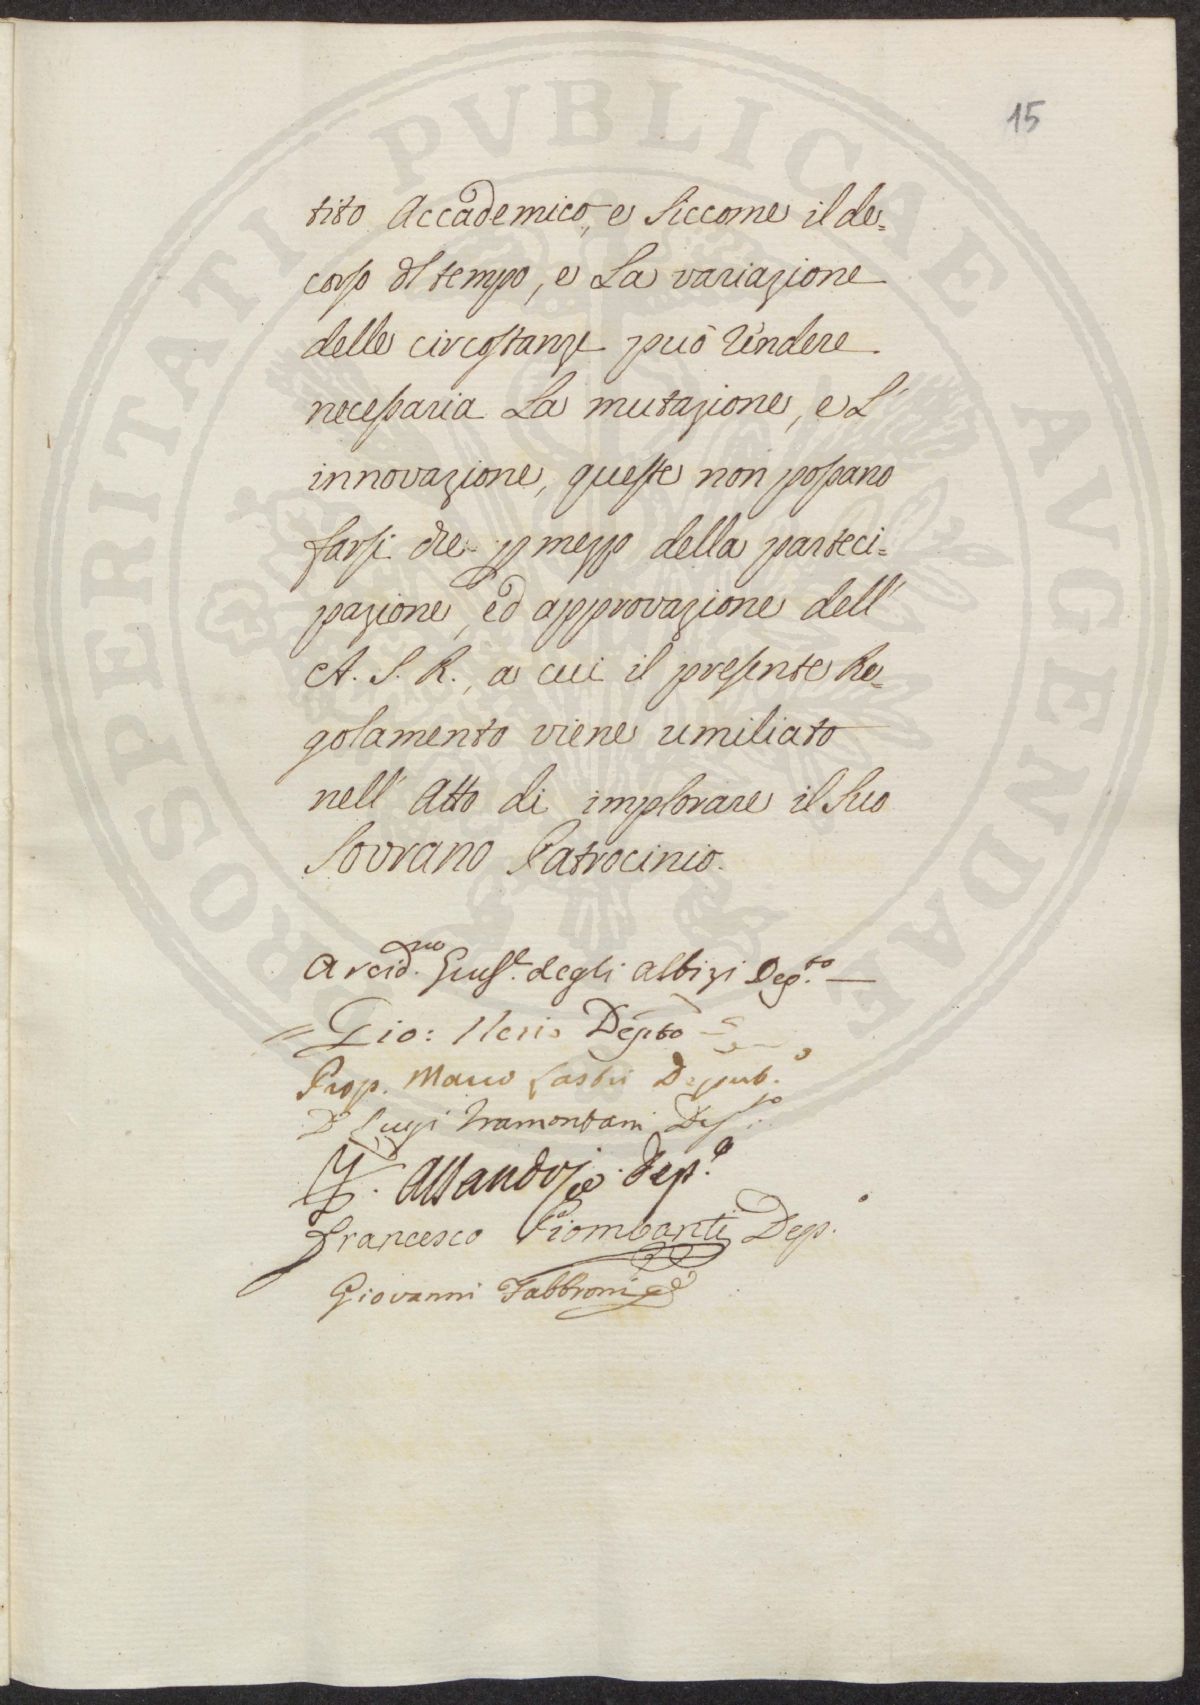 15
tito Accademico, e siccome il de=
corso del tempo, e La variazione
delle circostanze può rendere
necessaria La mutazione, e L'
innovazione, queste non possano
farsi che p mezzo della parteci=
pazione, ed approvazione dell'
A. S. R., a cui il presente Re=
golamento viene umiliato
nell' Atto di implorare il Suo
Sovrano Patrocinio.
Arcid.no Giuse. degli Albizi Dep.to
= Gio: Neri Depto
Prop. Marco Lastri Deput.o
Dr Luigi Tramontani Dep.to
Dep.o
Francesco Piombanti Dep.o
Giovanni Fabbroni
PROSPERITATI PVBLICAE AVGENDAE